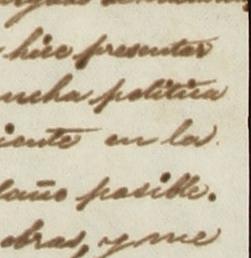 hice presentar
ucha politica
iente en la
laño posible.
obras, y me